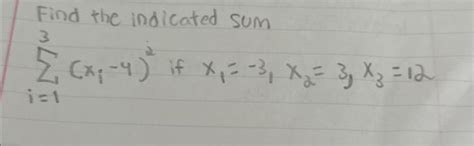 Find the indicated sum
3
∑ (xᵢ -4)² if x₁ = -3, x₂ = 3, x₃ = 12
i=1